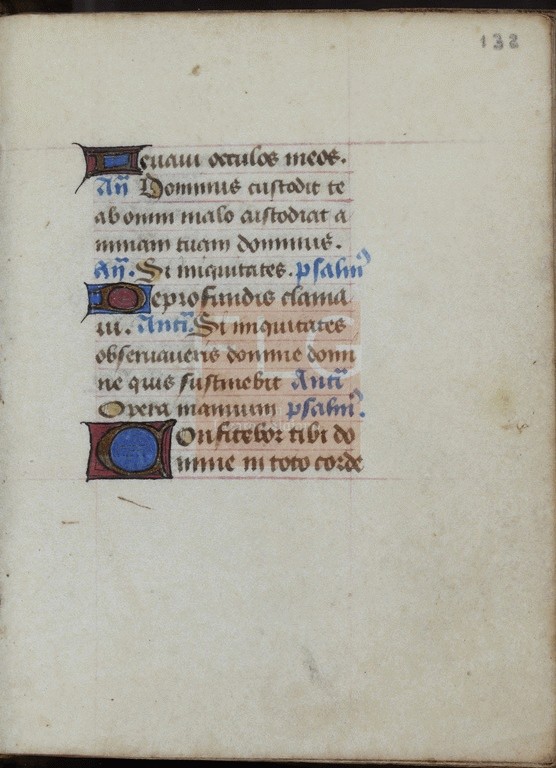 132
Leuavi occulos meos.
Añ Dominus custodit te
ab omni malo custodiat a
nimam tuam dominus.
Añ. Si iniquitates. psalm'
Deprofundis clama
ui. Antı̄. Si iniquitates
obseruaueris domine domi
ne quis sustinebit Antı̄
Opera manuum psalm'.
Confitebor tibi do
mine in toto corde